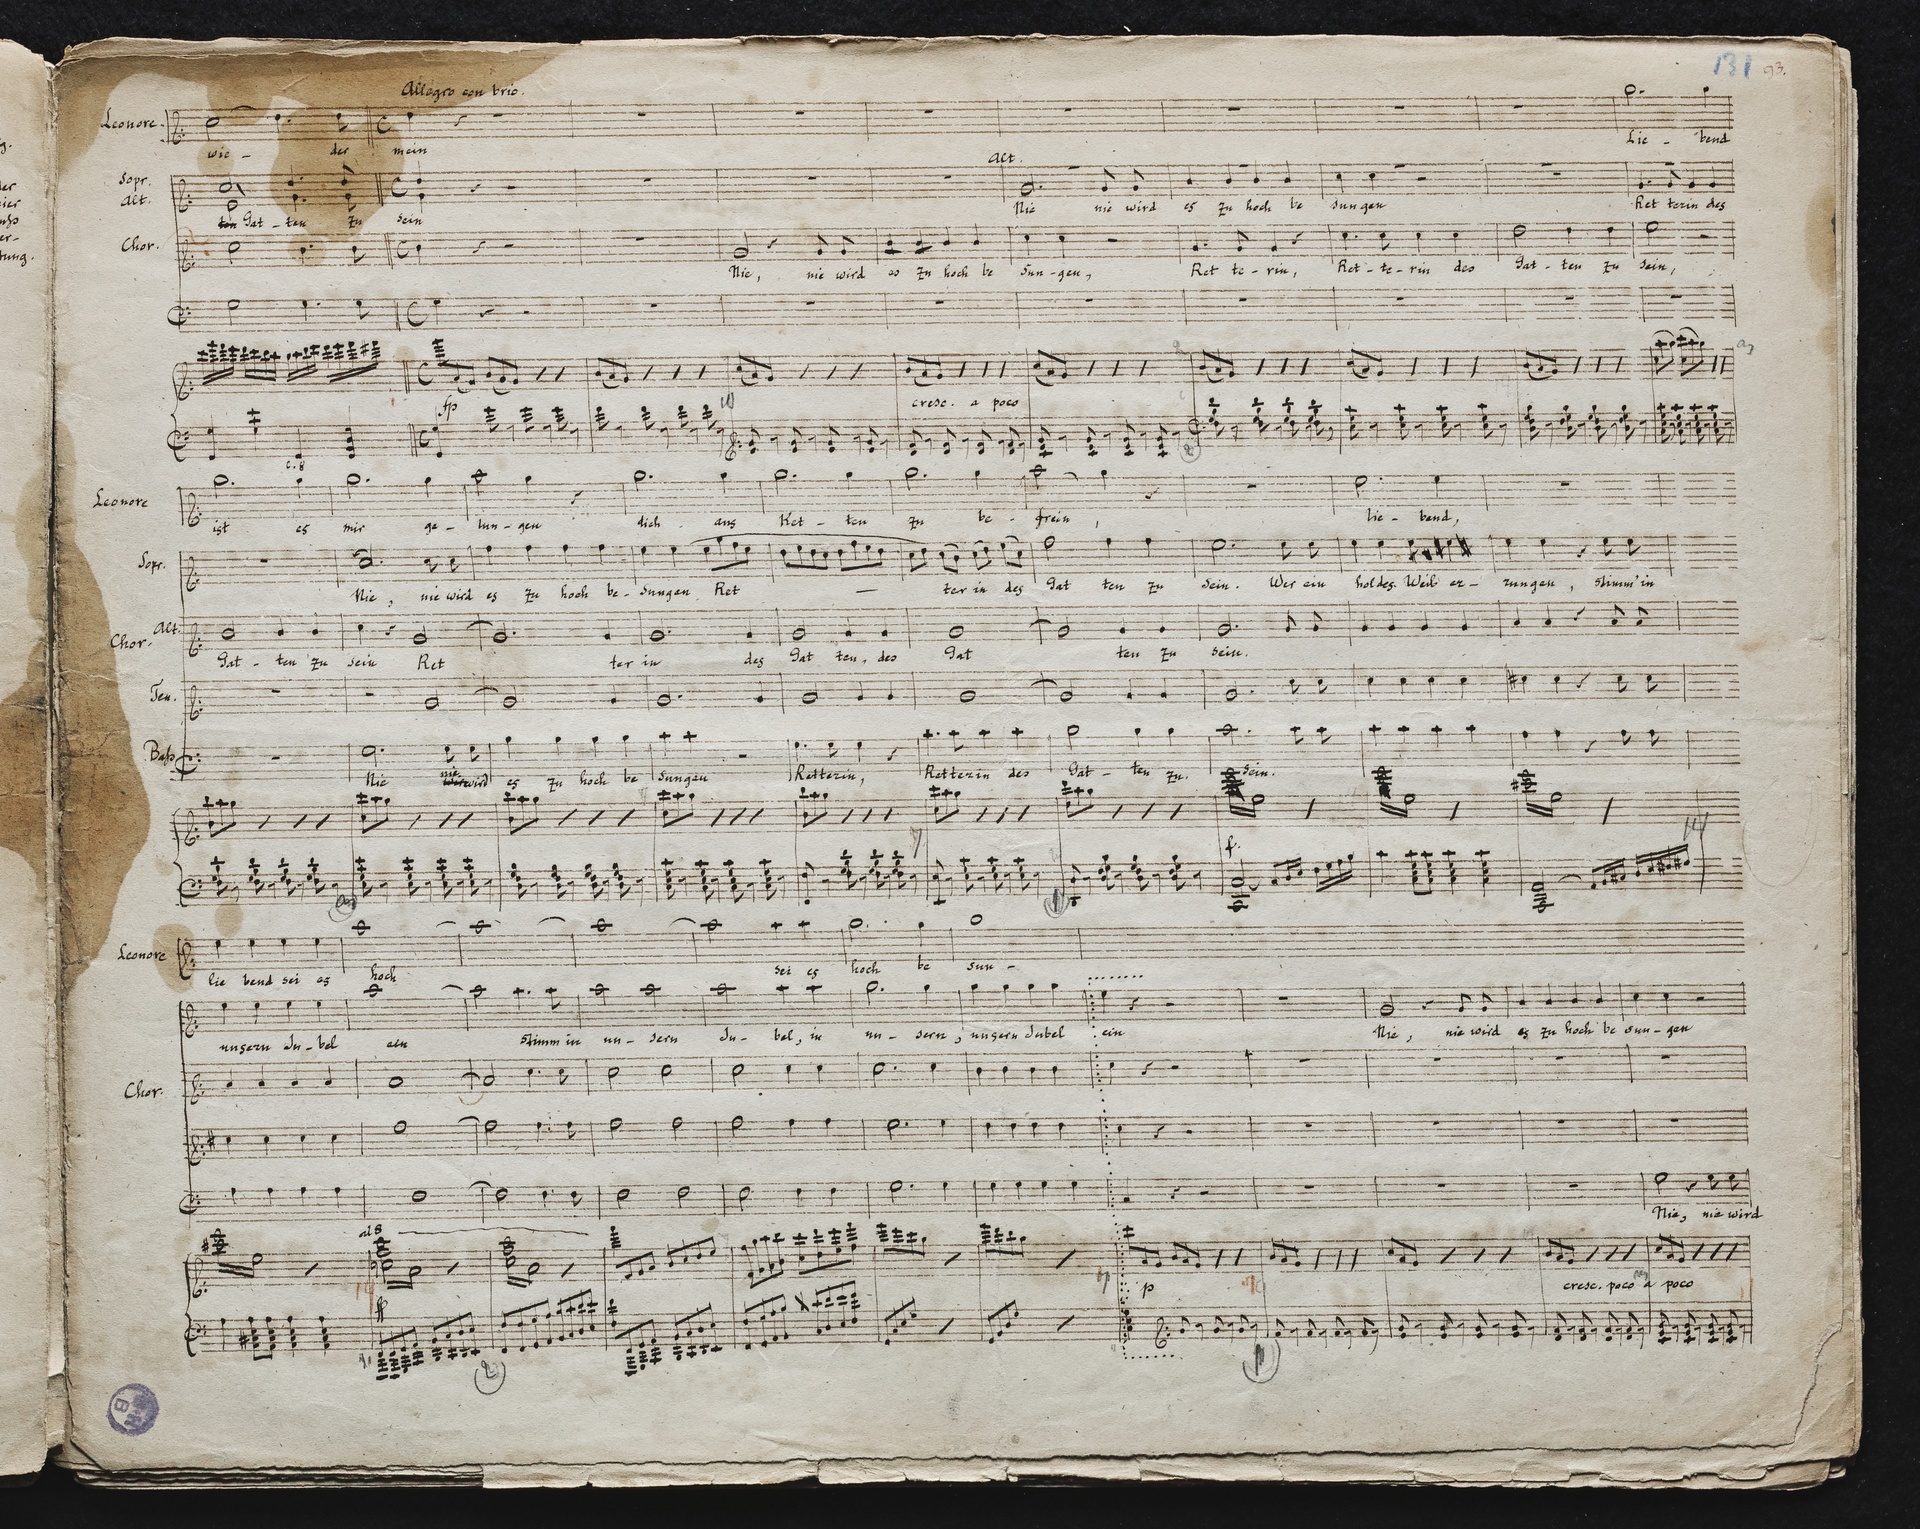 131 93.
Allegro con brio.
Leonore.
wie - der mein Lie - bend
Alt.
Sopr.
Alt.
Gat - ten zu sein Nie nie wird es zu hoch be sungen Ret terin des
Chor.
Nie, nie wird es zu hoch be sun - gen, Ret te - rin, Ret - te - rin des Gat - ten zu sein,
fp cresc. a poco
c. 8
Leonore
ist es mir ge - lun - gen dich aus Ket - ten zu be - frein, lie - bend,
Sopr.
Nie, nie wird es zu hoch be - sungen Ret - terin des Gat ten zu sein. Wer ein holdes Weib er - rungen, stimm' in
Chor. Alt.
Gat - ten zu sein Ret ter in des Gat ten, des Gat ten zu sein.
Ten.
Bass
Nie nie wird es zu hoch be sungen Retterin, Retterin des Gat - ten zu. sein.
f.
Leonore
lie bend sei es hoch sei es hoch be sun -
unsern Ju - bel ein stimm in un - sern Ju - bel, in un - sern, unsern Jubel ein Nie, nie wird es zu hoch be sun - gen
Chor.
Nie, nie wird
al 8
ff p cresc. poco a poco